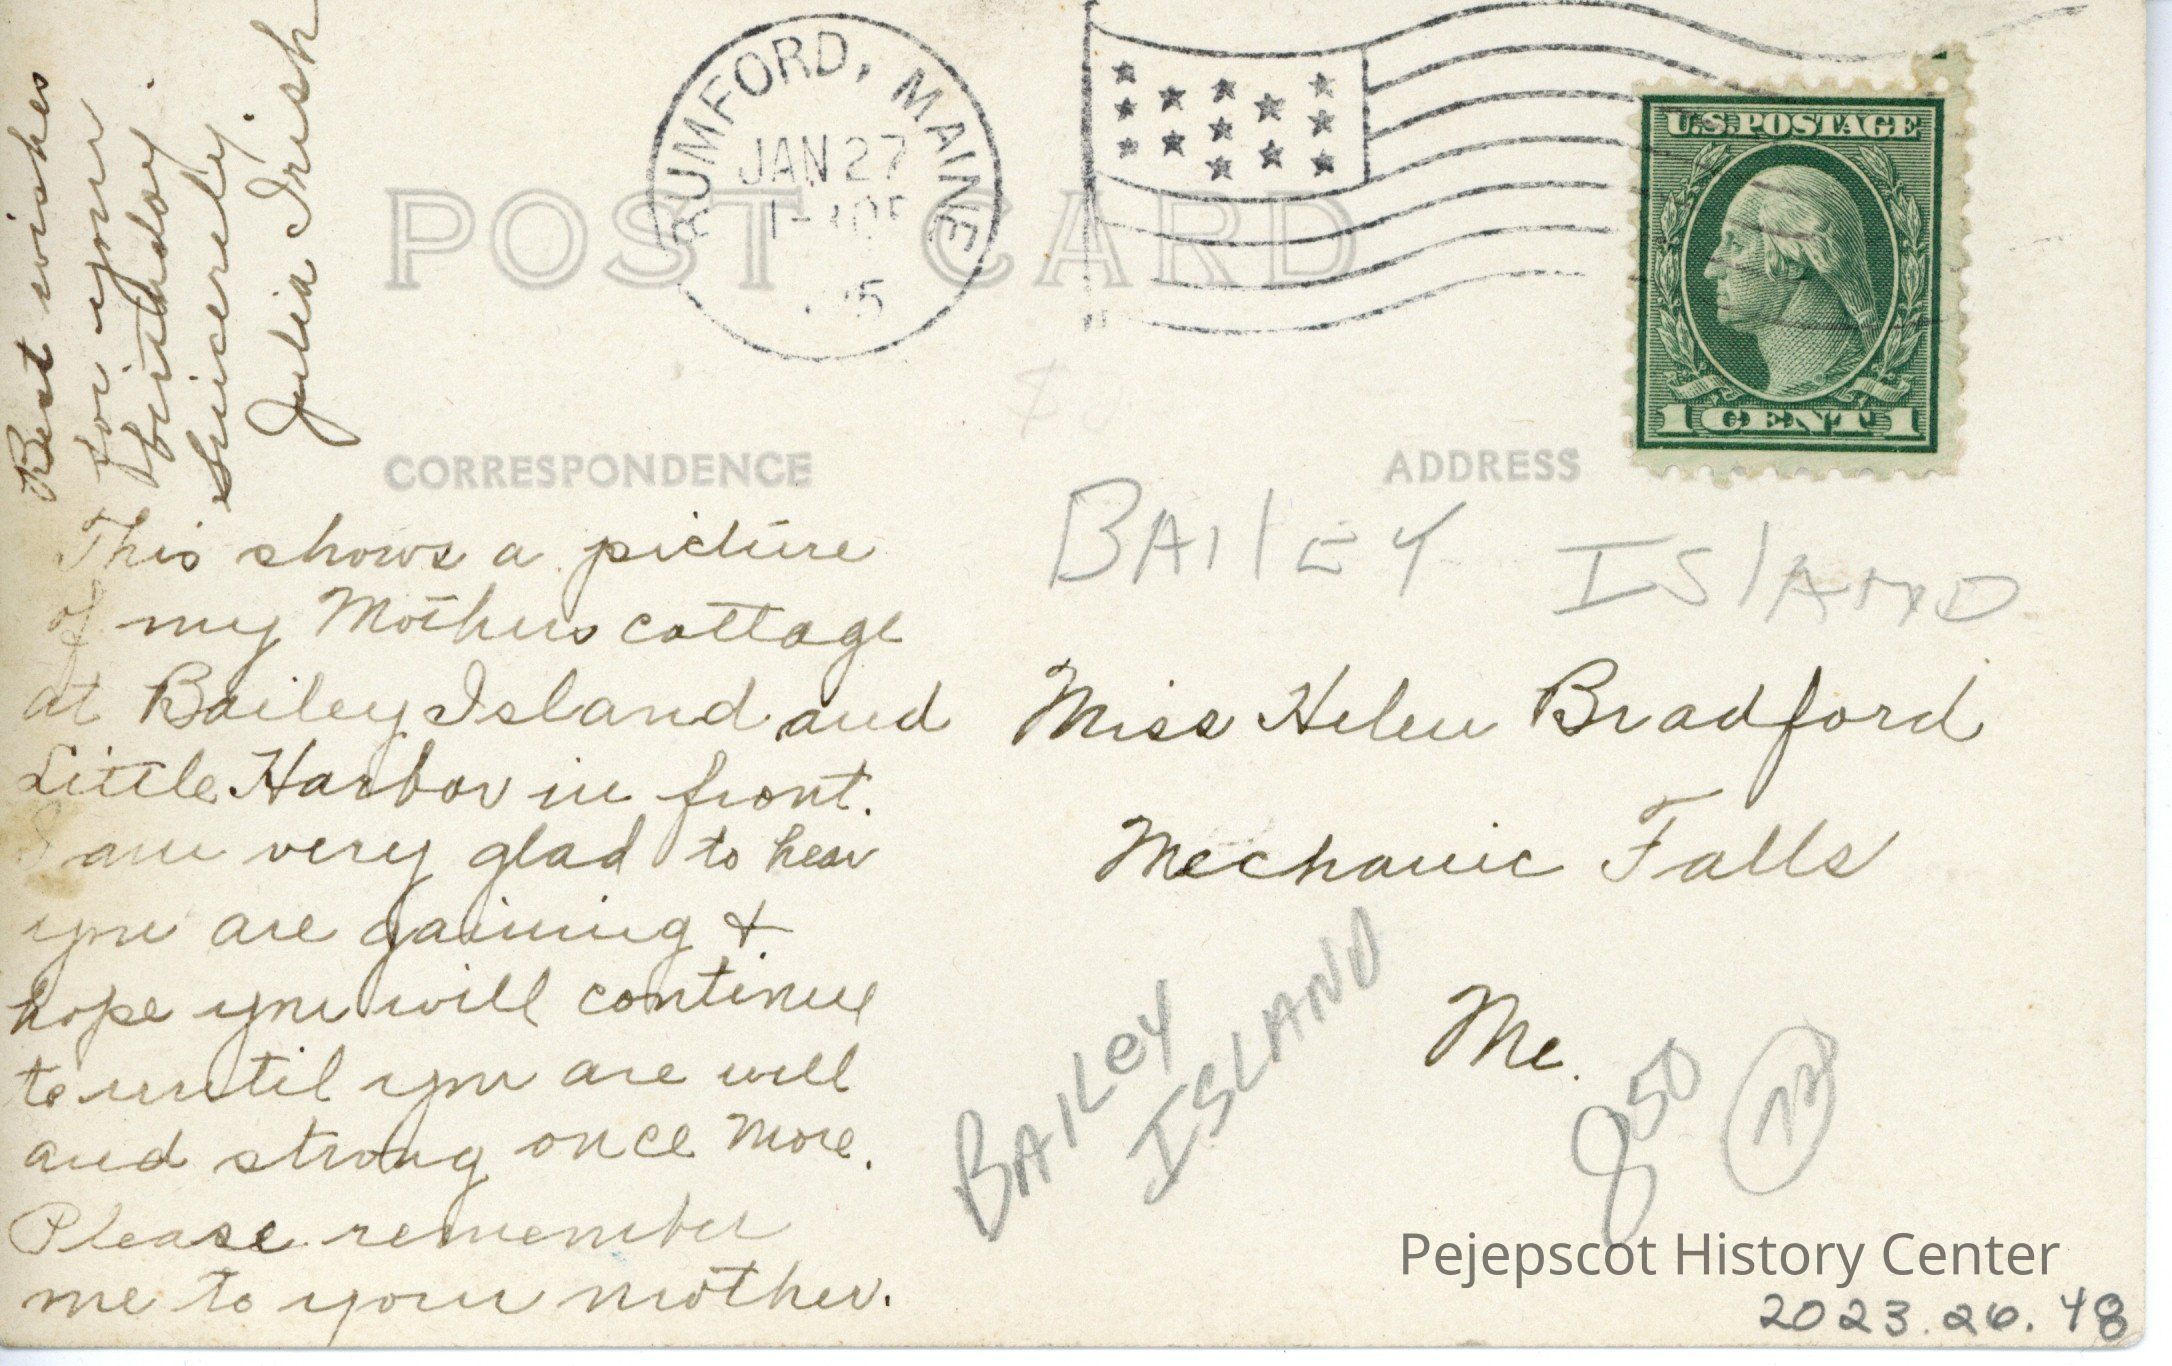 RUMFORD, MAINE
JAN 27
POST CARD
U.S. POSTAGE
1 CENT 1
CORRESPONDENCE
ADDRESS
This shows a picture
of my Mothers cottage
at Bailey Island and
Little Harbor in front.
I am very glad to hear
you are gaining +
hope you will continue
to until you are well
and strong once more.
Please remember
me to your mother.
Best wishes
for your
birthday.
Sincerely,
Julia Irish
BAILEY ISLAND
Miss Helen Bradford
Mechanic Falls
Me.
BAILEY
ISLAND
8 50
Pejepscot History Center
2023.26.48